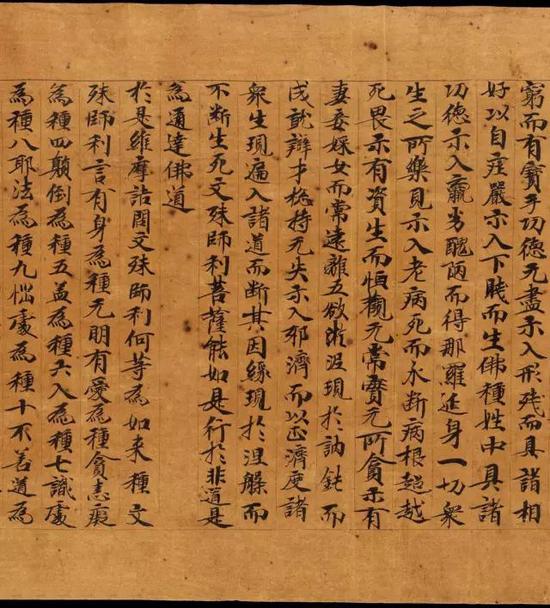 窮而有寶手功德无盡示入形残而具諸相
好以自庄嚴示入下賤而生佛種姓中具諸
功德示入羸劣醜陋而得那羅延身一切衆
生之所樂見示入老病死而永断病根超越
死畏示有資生而恒觀无常實无所貪示有
妻妾婇女而常遠離五欲淤泥現於訥鈍而
成就辯才惣持无失示入邪濟而以正濟度諸
衆生現遍入諸道而断其因緣現於涅槃而
不断生死文殊師利菩薩能如是行於非道是
為通達佛道
於是維摩詰問文殊師利何等為如来種文
殊師利言有身為種无明有愛為種貪恚癡
為種四顛倒為種五盖為種六入為種七識處
為種八耶法為種九惱處為種十不善道為